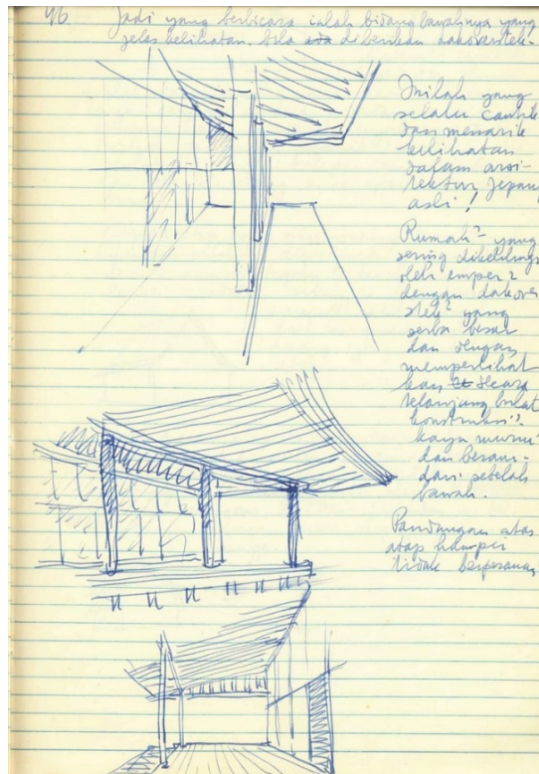 46 Jadi yang berbicara ialah bidang bawahnya yang
jelas kelihatan. bila diberikan dakoverstek.
Inilah yang
selalu cantik
dan menarik
kelihatan
dalam arsi-
tektur Jepang
asli!
Rumah² yang
sering dikelilingi
oleh emper²
dengan dakover
stek² yang
serba besar
dan dengan
memperlihat
kan secara
telanjang bulat
konstruksi²
kayu murni
dan berani
dari sebelah
bawah.
Pandangan atas
atap hampir
tidak berperanan